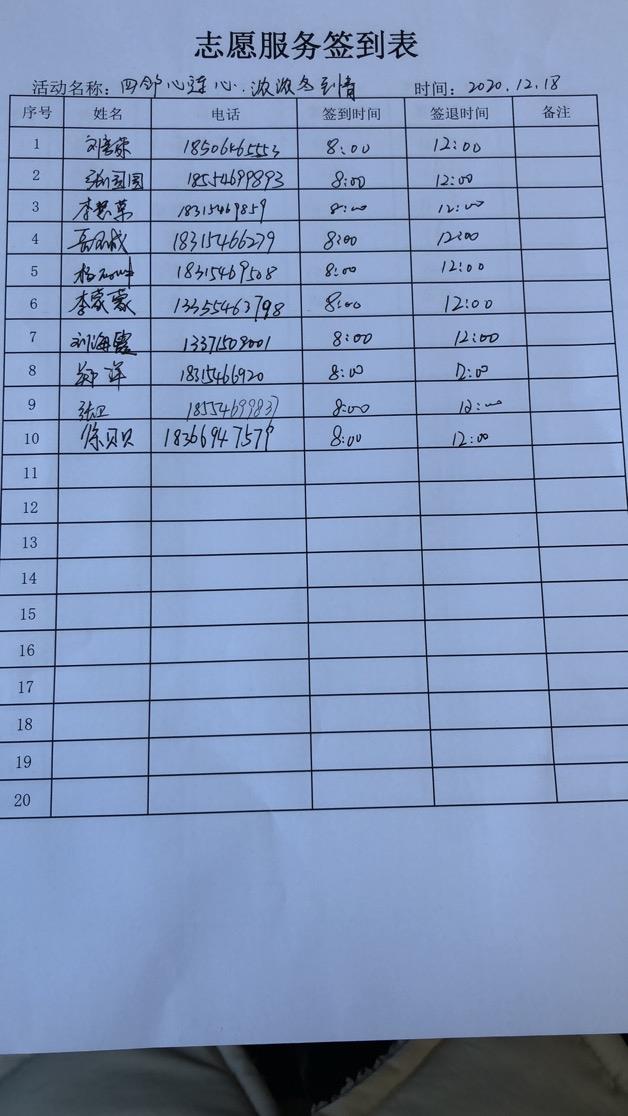 志愿服务签到表
活动名称：四邻心连心.浓浓冬至情 时间：2020.12.18
序号 姓名 电话 签到时间 签退时间 备注
1 18506465553 8:00 12:00
2 张园园 18554699893 8:00 12:00
3 18315469859 8:00 12:00
4 18315466279 8:00 12:00
5 18315469508 8:00 12:00
6 李蒙蒙 13355463798 8:00 12:00
7 刘海霞 13371508001 8:00 12:00
8 郑洋 18315466920 8:00 12:00
9 张卫 18554699837 8:00 12:00
10 徐贝贝 18366947579 8:00 12:00
11
12
13
14
15
16
17
18
19
20